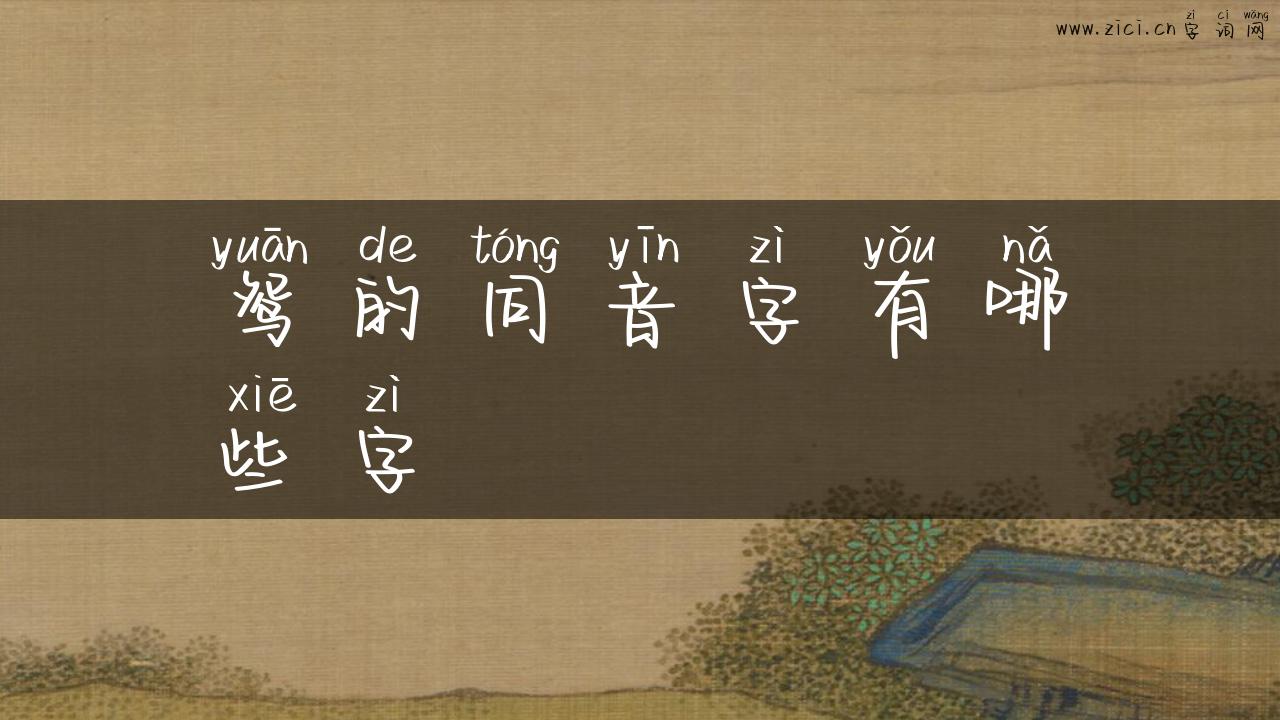 zì cí wǎng
www.zici.cn 字 词 网
yuān de tóng yīn zì yǒu nǎ
鸳 的 同 音 字 有 哪
xiē zì
些 字